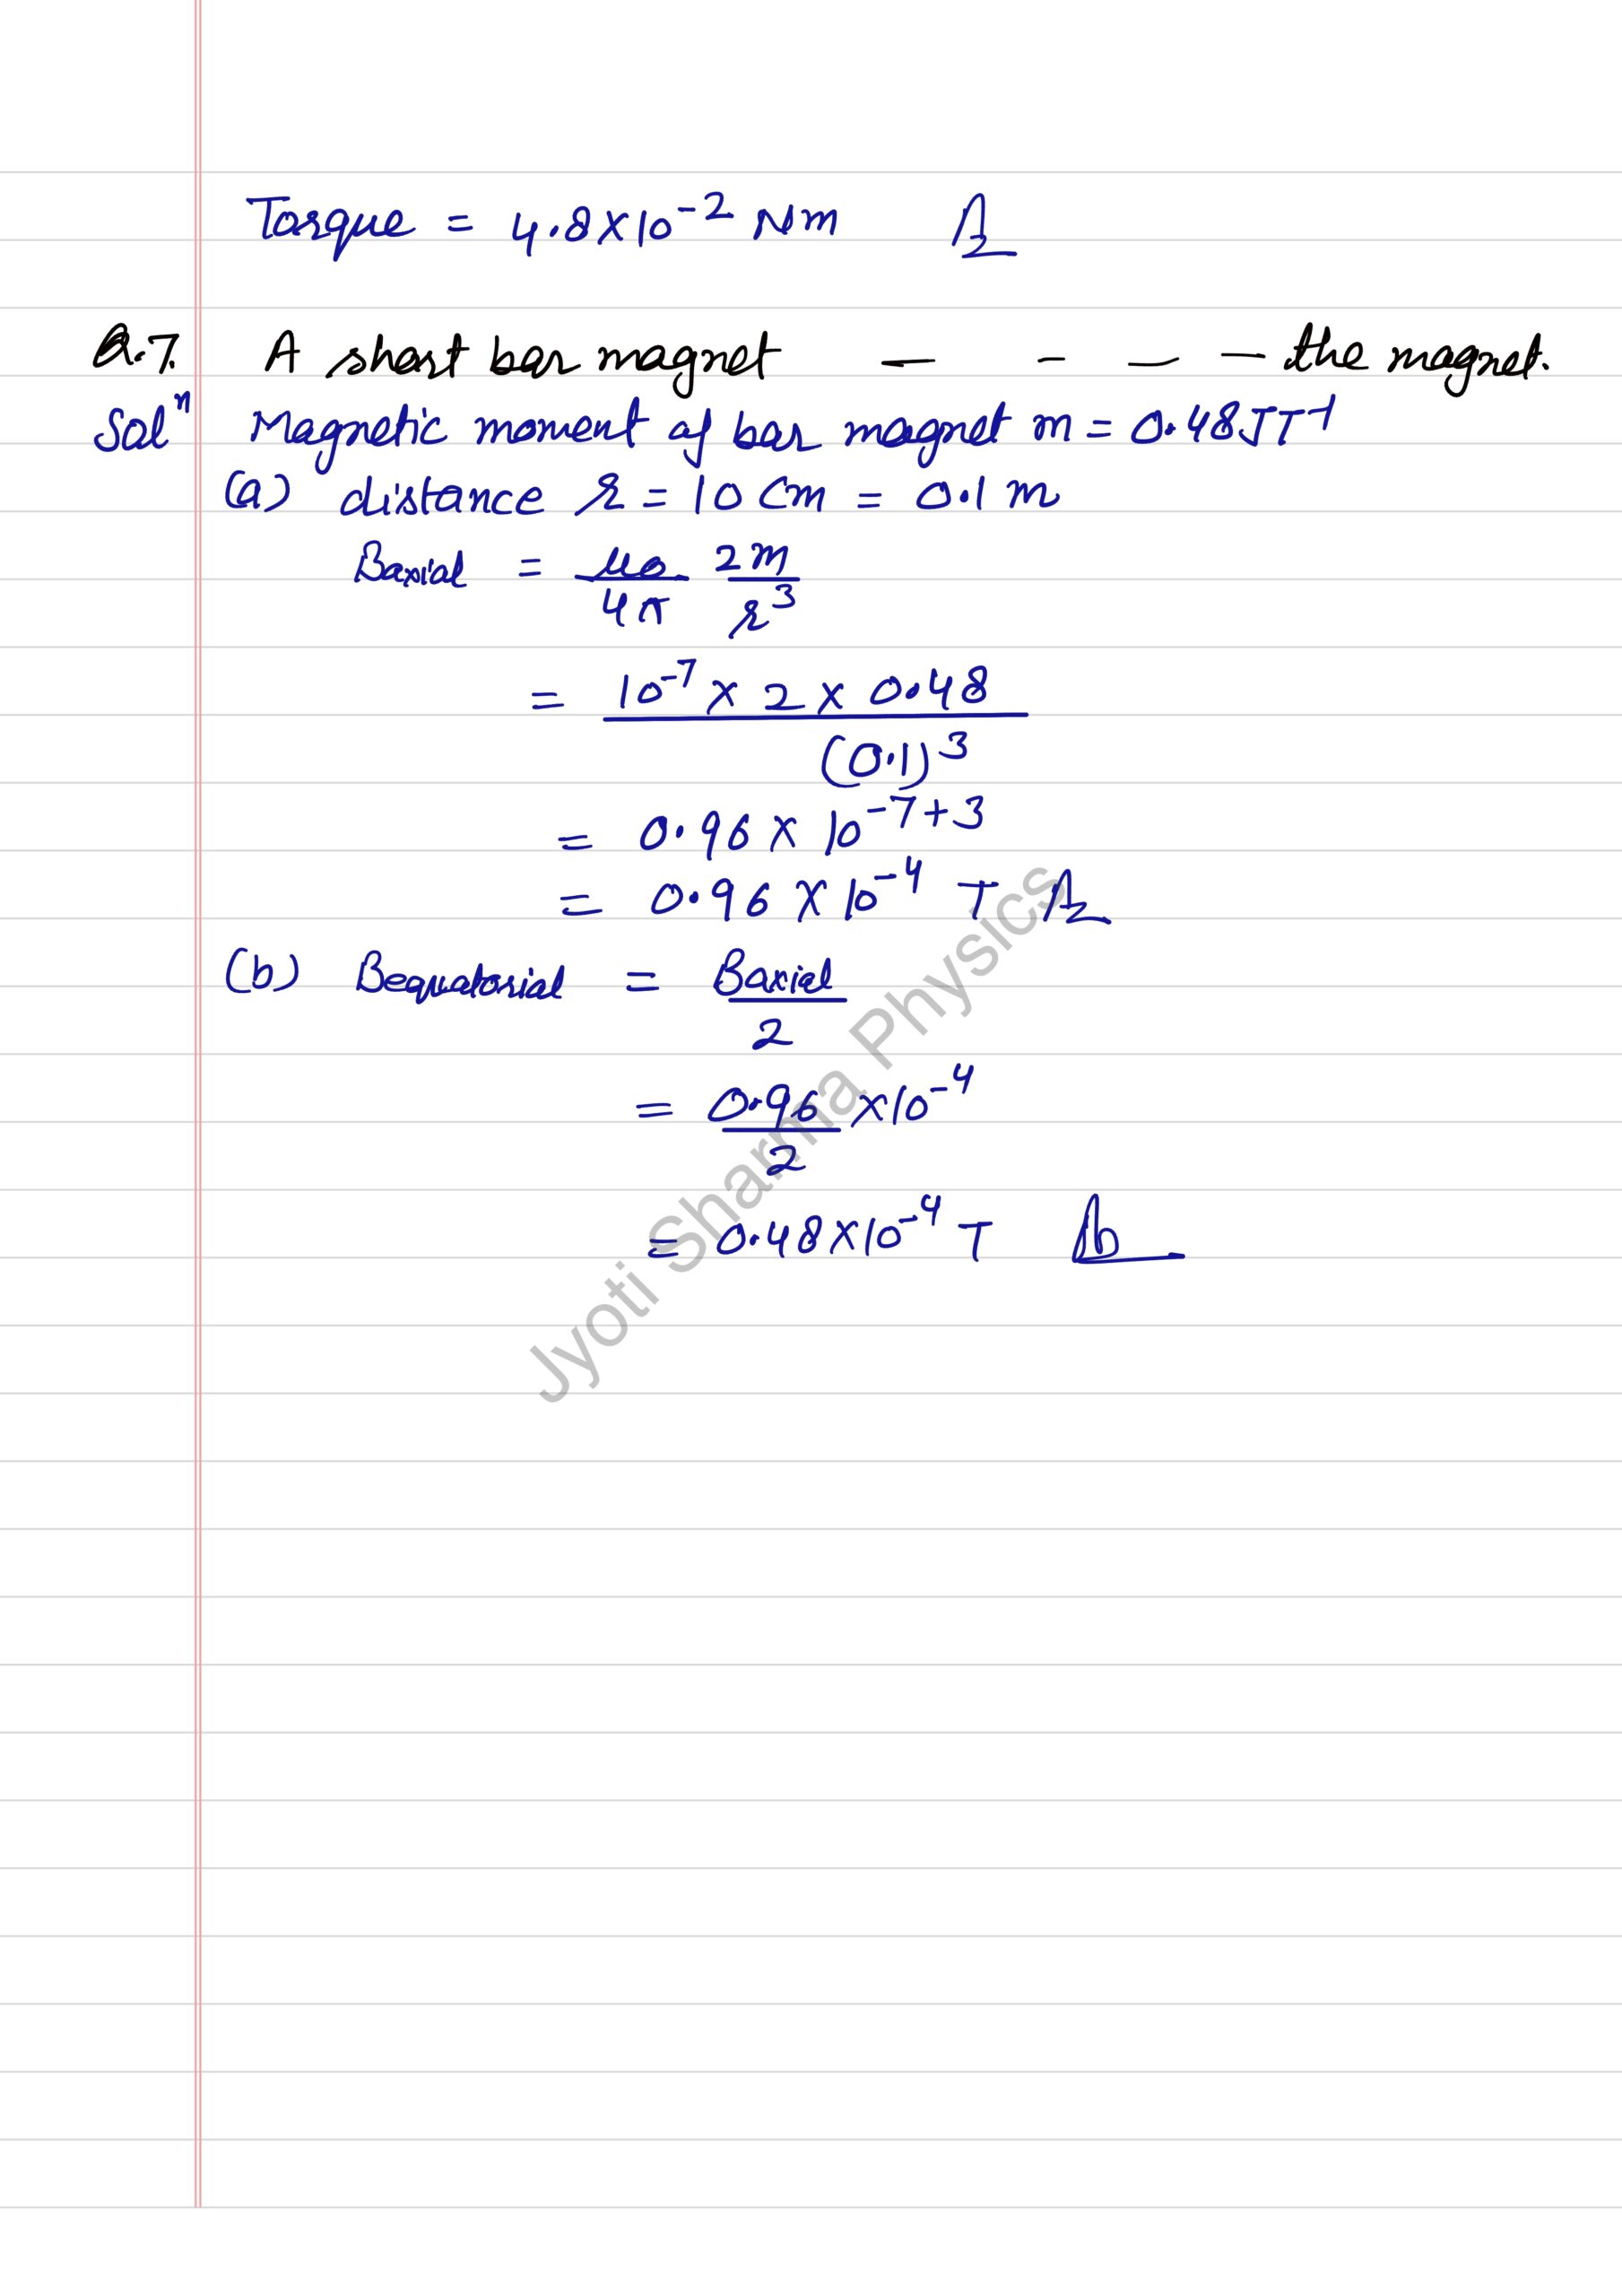 Torque = 4.8×10⁻² Nm
Q.7. A short bar magnet — - — - the magnet.
Solⁿ Magnetic moment of bar magnet m = 0.48 JT⁻¹
(a) distance r = 10 cm = 0.1 m
Baxial = μ₀/4π 2m/r³
= 10⁻⁷ × 2 × 0.48 / (0.1)³
= 0.96 × 10⁻⁷⁺³
= 0.96 × 10⁻⁴ T
(b) Bequatorial = Baxial/2
= 0.96/2 × 10⁻⁴
= 0.48×10⁻⁴ T
Jyoti Sharma Physics